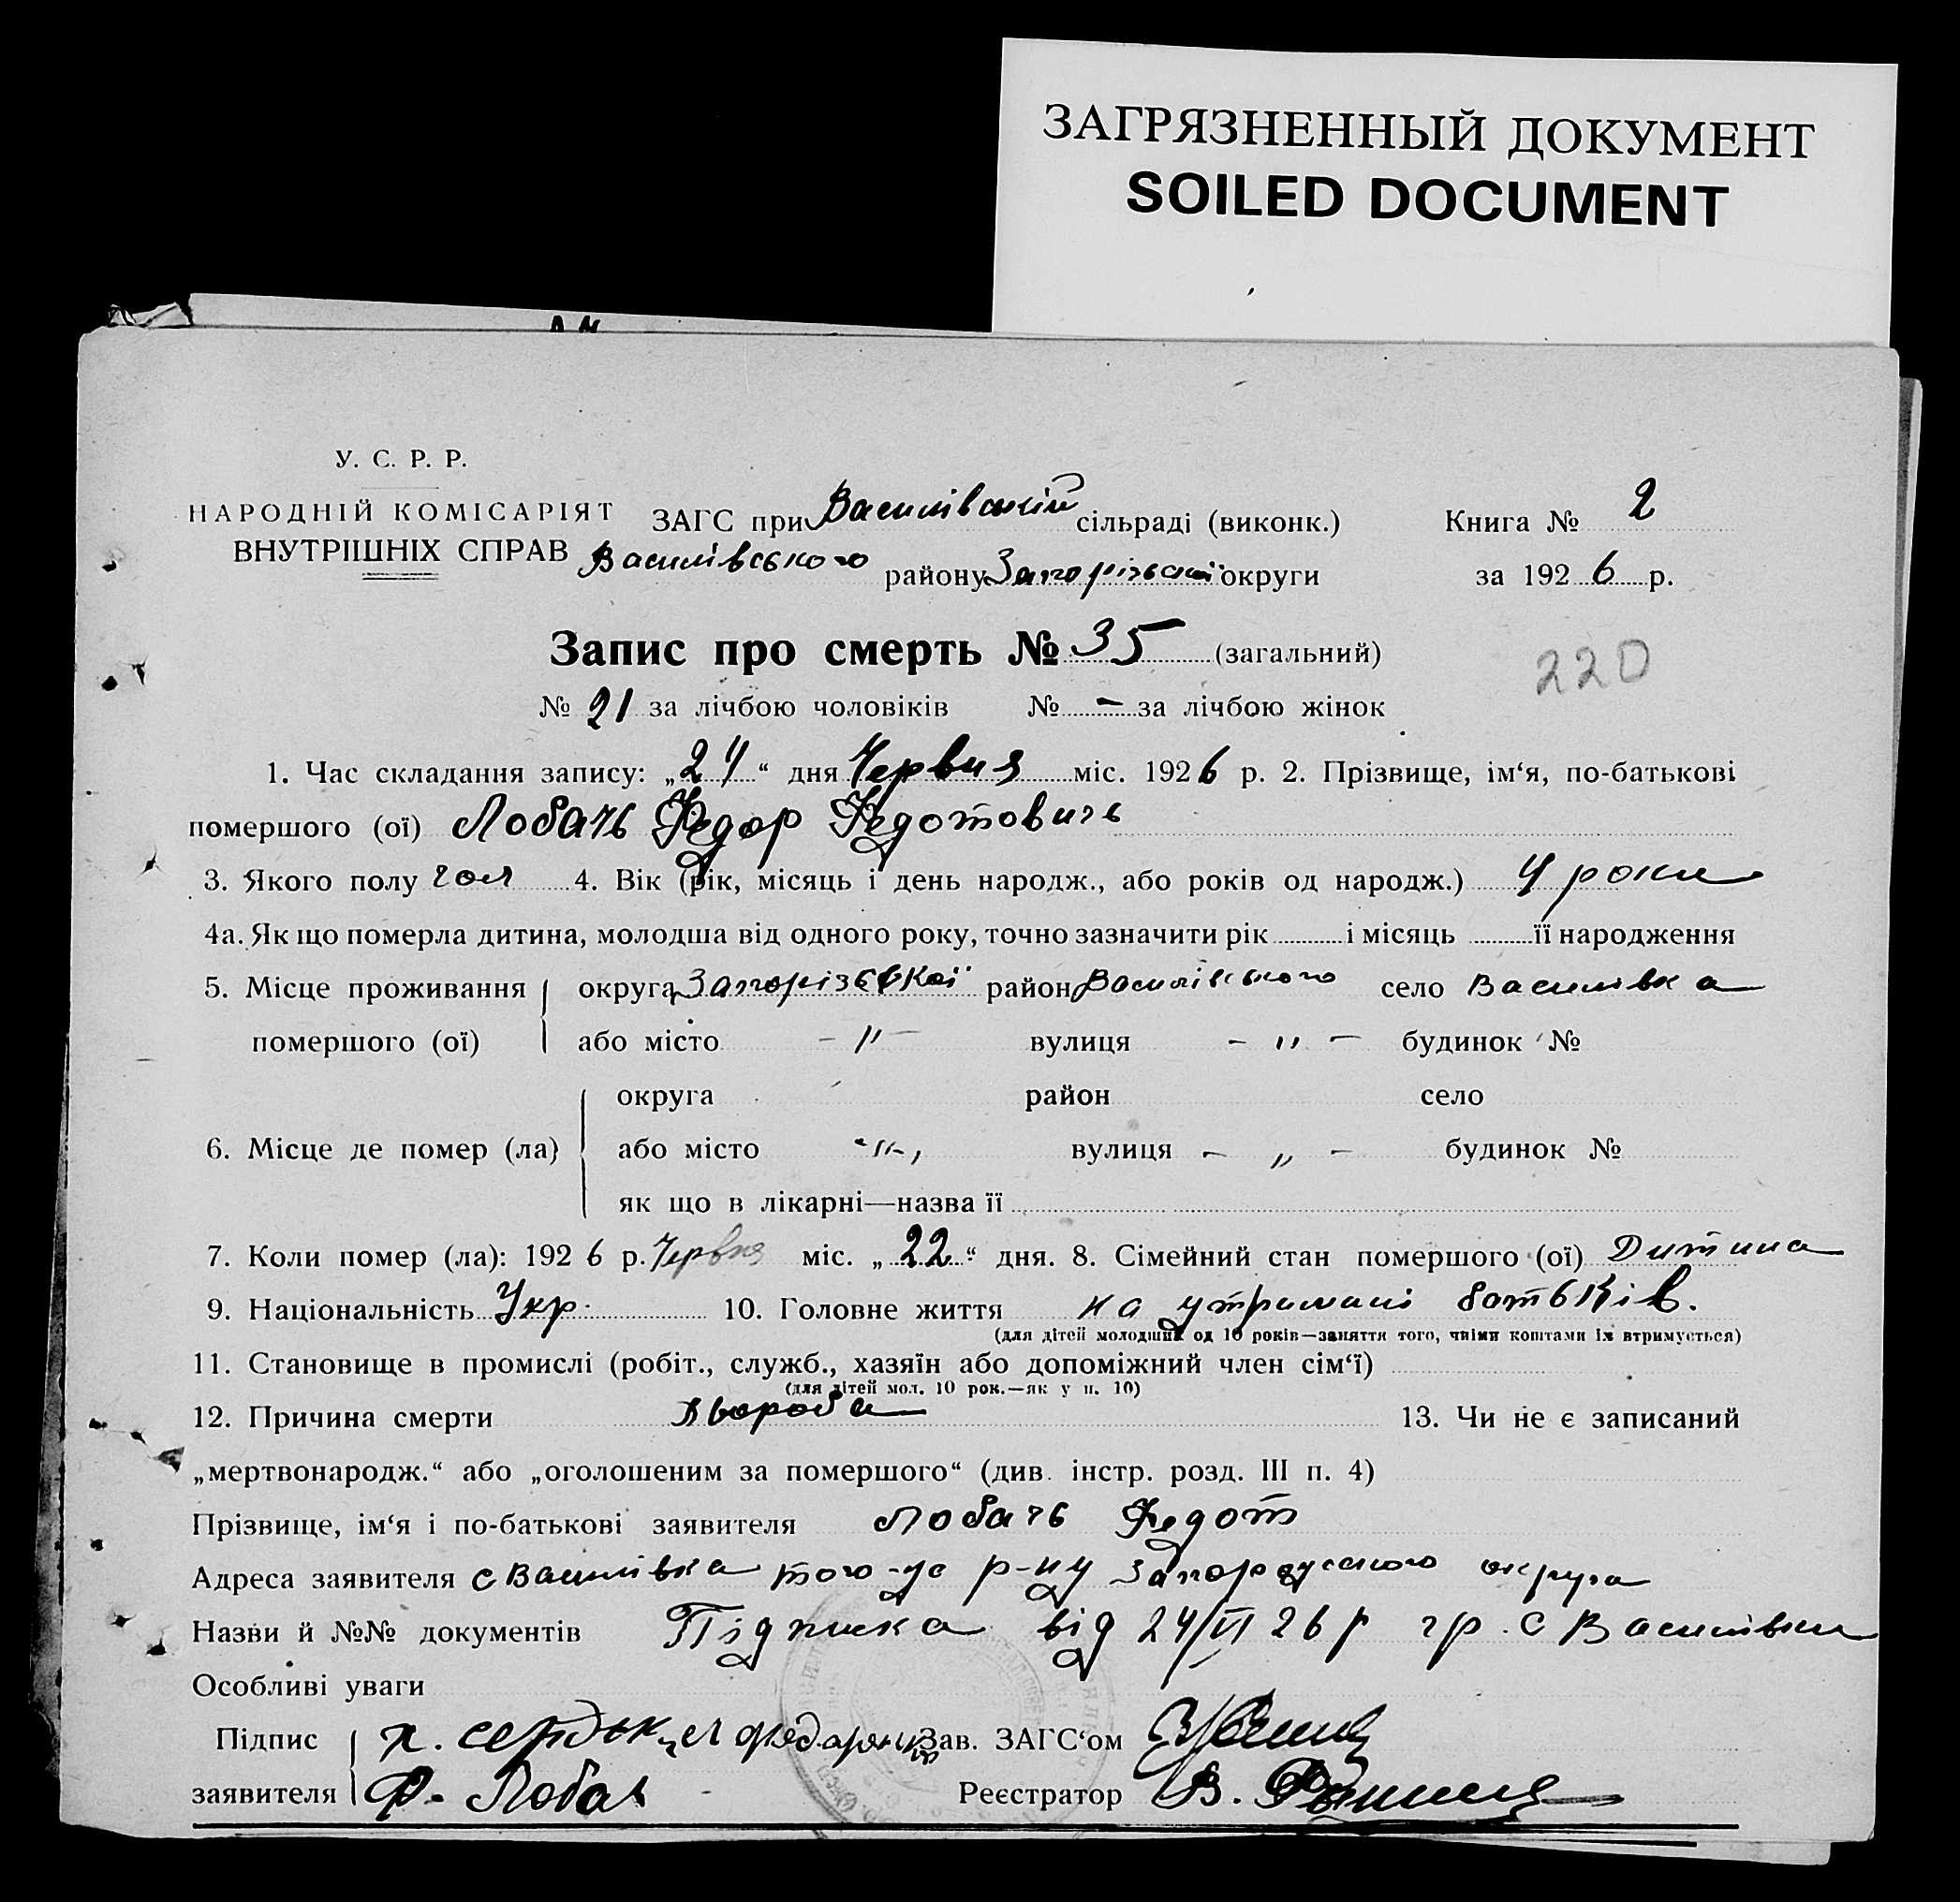 ЗАГРЯЗНЕННЫЙ ДОКУМЕНТ
SOILED DOCUMENT
У. С. Р. Р.
НАРОДНІЙ КОМІСАРІЯТ
ВНУТРІШНІХ СПРАВ
ЗАГС при Василівській сільраді (виконк.)
Василівського району Запорізької округи
Книга № 2
за 1926 р.
Запис про смерть № 35 (загальний)
220
№ 21 за лічбою чоловіків № – за лічбою жінок
1. Час складання запису: „24“ дня Червня міс. 1926 р. 2. Прізвище, ім‘я, по-батькові
помершого (ої) Лобачь Федор Федотовичь
3. Якого полу чол 4. Вік (рік, місяць і день народж., або років од народж.) 4 роки
4а. Як що померла дитина, молодша від одного року, точно зазначити рік і місяць її народження
5. Місце проживання округа Запорізької район Василівського село Василівка
помершого (ої) або місто – " – вулиця – " – будинок №
округа район село
6. Місце де помер (ла) або місто – " – вулиця – " – будинок №
як що в лікарні—назва її
7. Коли помер (ла): 1926 р. Червня міс. „22“ дня. 8. Сімейний стан помершого (ої) Дитина
9. Національність Укр. 10. Головне життя на утримані батьків.
(для дітей молодших од 10 років—заняття того, чиїми коштами їх втримується)
11. Становище в промислі (робіт., служб., хазяїн або допоміжний член сім‘ї)
(для дітей мол. 10 рок.—як у п. 10)
12. Причина смерти 13. Чи не є записаний
„мертвонародж.“ або „оголошеним за помершого“ (див. інстр. розд. III п. 4)
Прізвище, ім‘я і по-батькові заявителя Лобачь Федот
Адреса заявителя с Василівка того-же р-ну округа
Назви й №№ документів Підписка від 24/VI 26 р гр. с Василівки
Особливі уваги
Підпис Зав. ЗАГС‘ом
заявителя Ф. Лобач Реєстратор В.